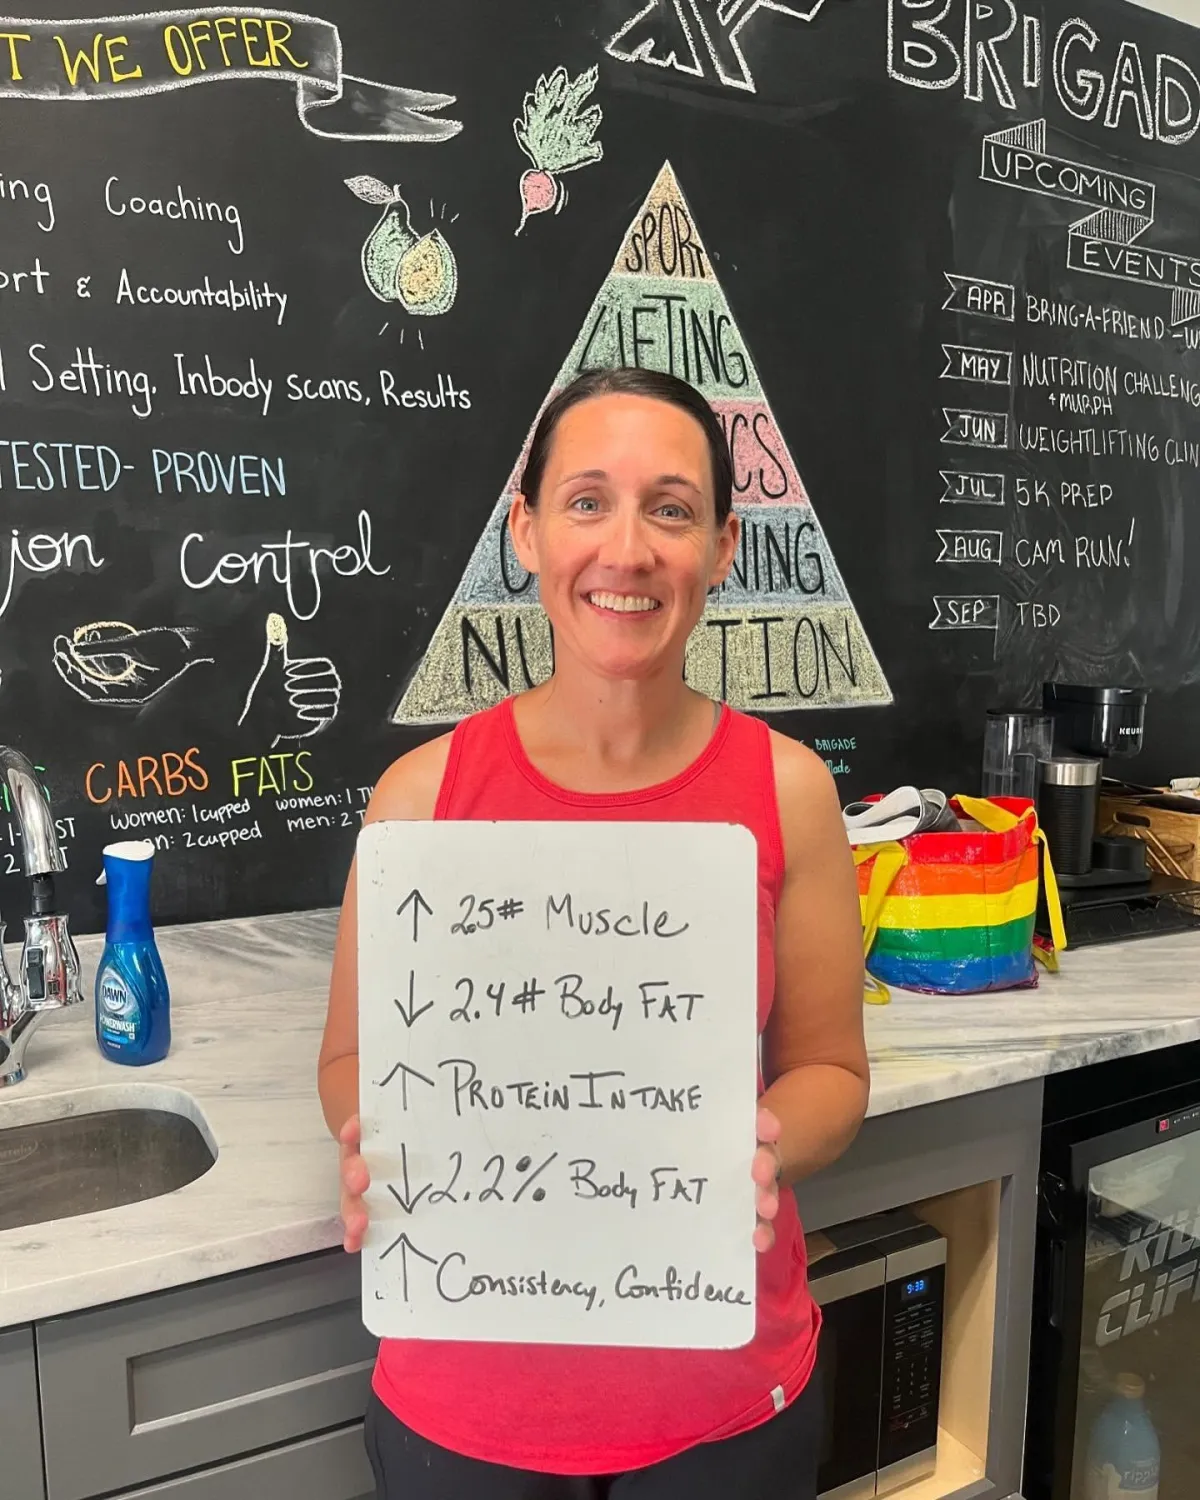 T WE OFFER
ing Coaching
ort & Accountability
l Setting, Inbody scans, Results
TESTED- PROVEN
ion Control
CARBS FATS
women: 1 cupped
women: 1
n: 2 cupped
men: 2
SPORT
LIFTING
ICS
NING
NU TION
BRIGADE
made
BRIGAD
UPCOMING
EVENTS
APR BRING-A-FRIEND - W
MAY NUTRITION CHALLENG
+ MURPH
JUN WEIGHTLIFTING CLIN
JUL 5K PREP
AUG CAM RUN!
SEP TBD
KEUR
DAWN
POWERWASH
↑ 2.5# Muscle
↓ 2.4# Body FAT
↑ PROTEIN INTAKE
↓ 2.2% Body FAT
↑ Consistency, Confidence
9:33
KILL
CLIF
ripple